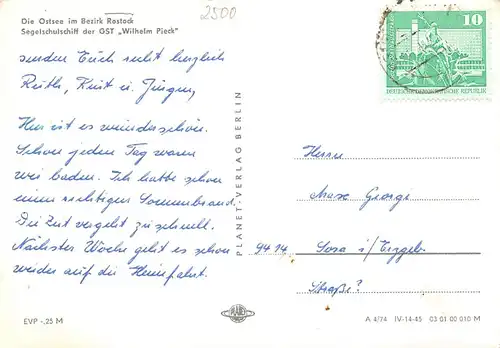 Die Ostsee im Bezirk Rostock
Segelschulschiff der GST „Wilhelm Pieck"
2500
10
DEUTSCHE DEMOKRATISCHE REPUBLIK
senden Euch recht herzlich
Ruth, Kurt u. Jürgen,
Hier ist es wunderschön.
Schon jeden Tag waren
wir baden. Ich habe schon
einen richtigen Sonnenbrand.
Die Zeit vergeht zu schnell.
Nächster Woche geht es schon
wieder auf die Heimfahrt.
PLANET-VERLAG BERLIN
Herrn
Max Georgi
9414 Sosa i/Erzgeb.
Straße?
EVP -,25 M
PLANET
A 4/74 IV-14-45 03 01 00 010 M